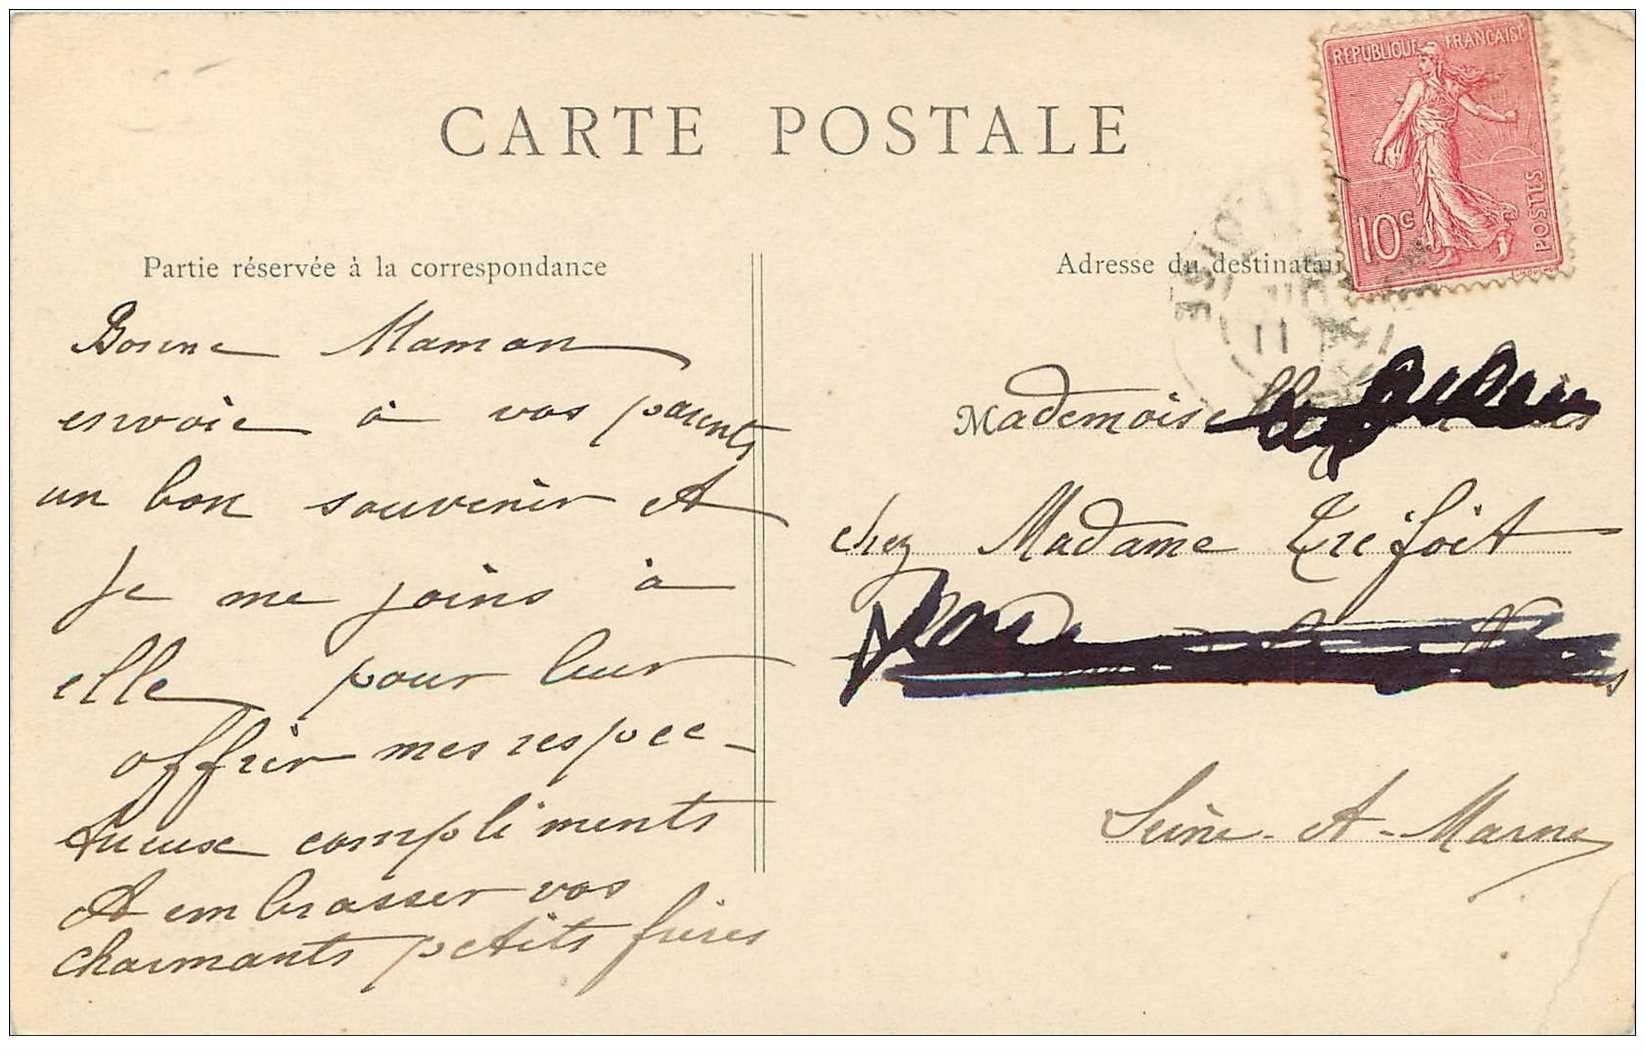 CARTE POSTALE
REPUBLIQUE FRANÇAISE
10c
POSTES
Partie réservée à la correspondance
Adresse du destinatai
OISE
11
Bonne Maman
envoie à vos parents
un bon souvenir et
je me joins à
elle pour leur
offrir mes respec-
tueux compliments
et embrasser vos
charmants petits frères
Mademoise
chez Madame Tréfoit
Seine-et-Marne